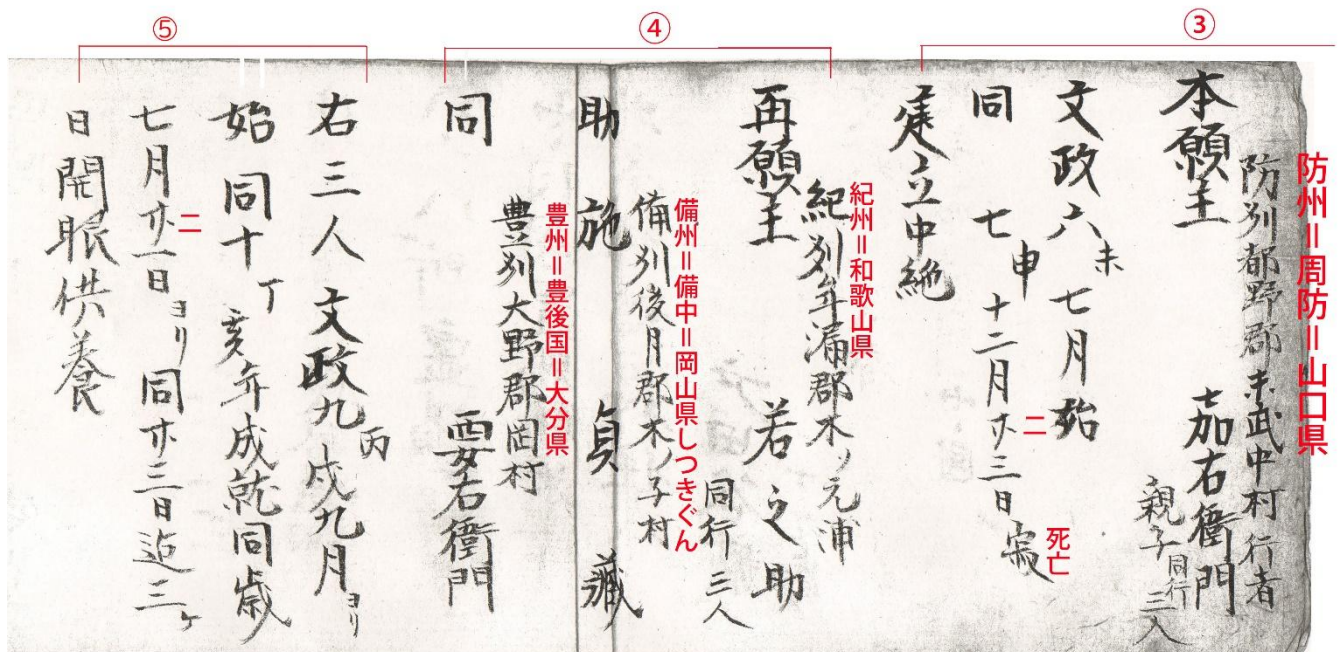 ③
④
⑤
防州＝周防＝山口県
防刕都野郡末武中村 行者
本願主 加右衛門
親子同行三人
文政六未 七月始
同 七申 十二月廿三日寂
二
死亡
建立中絶
紀州＝和歌山県
紀刕牟漏郡木ノ元浦
再願主 若之助
同行 三人
備州＝備中＝岡山県しつきぐん
備刕後月郡木ノ子村
助施 貞藏
豊州＝豊後国＝大分県
豊刕大野郡岡村
同 要右衛門
右三人 文政九丙戌九月ヨリ
始 同十丁亥年成就同歳
七月廿一日ヨリ同廿三日迠三ケ
二
日開眼供養